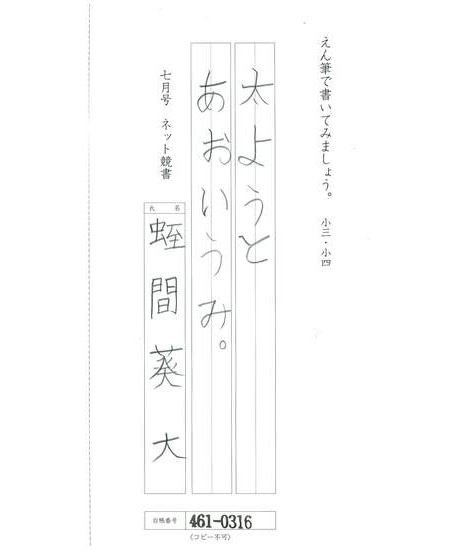 えん筆で書いてみましょう。 小三・小四
太ようと
あおいうみ。
七月号 ネット競書
氏名
蛭間葵大
台帳番号 461-0316
(コピー不可)